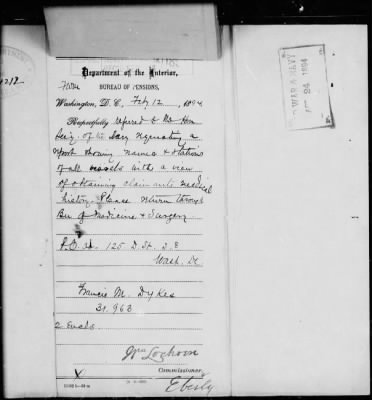 Department of the Interior,
BUREAU OF PENSIONS,
Washington, D. C., Feby 12, 1894
Respectfully referred to the Hon
Sec'y. of the Navy requesting a
report showing names & stations
of all vessels with a view
of obtaining claimants medical
history. Please return through
Bu. of Medicine & Surgery
P.O. ad. 125 D. St. S.E
Wash. DC
Francis M. Dykes
31.963
2 Encls.
Wm Lochren
Commissioner.
Eberly
WAR & NAVY
24 1894